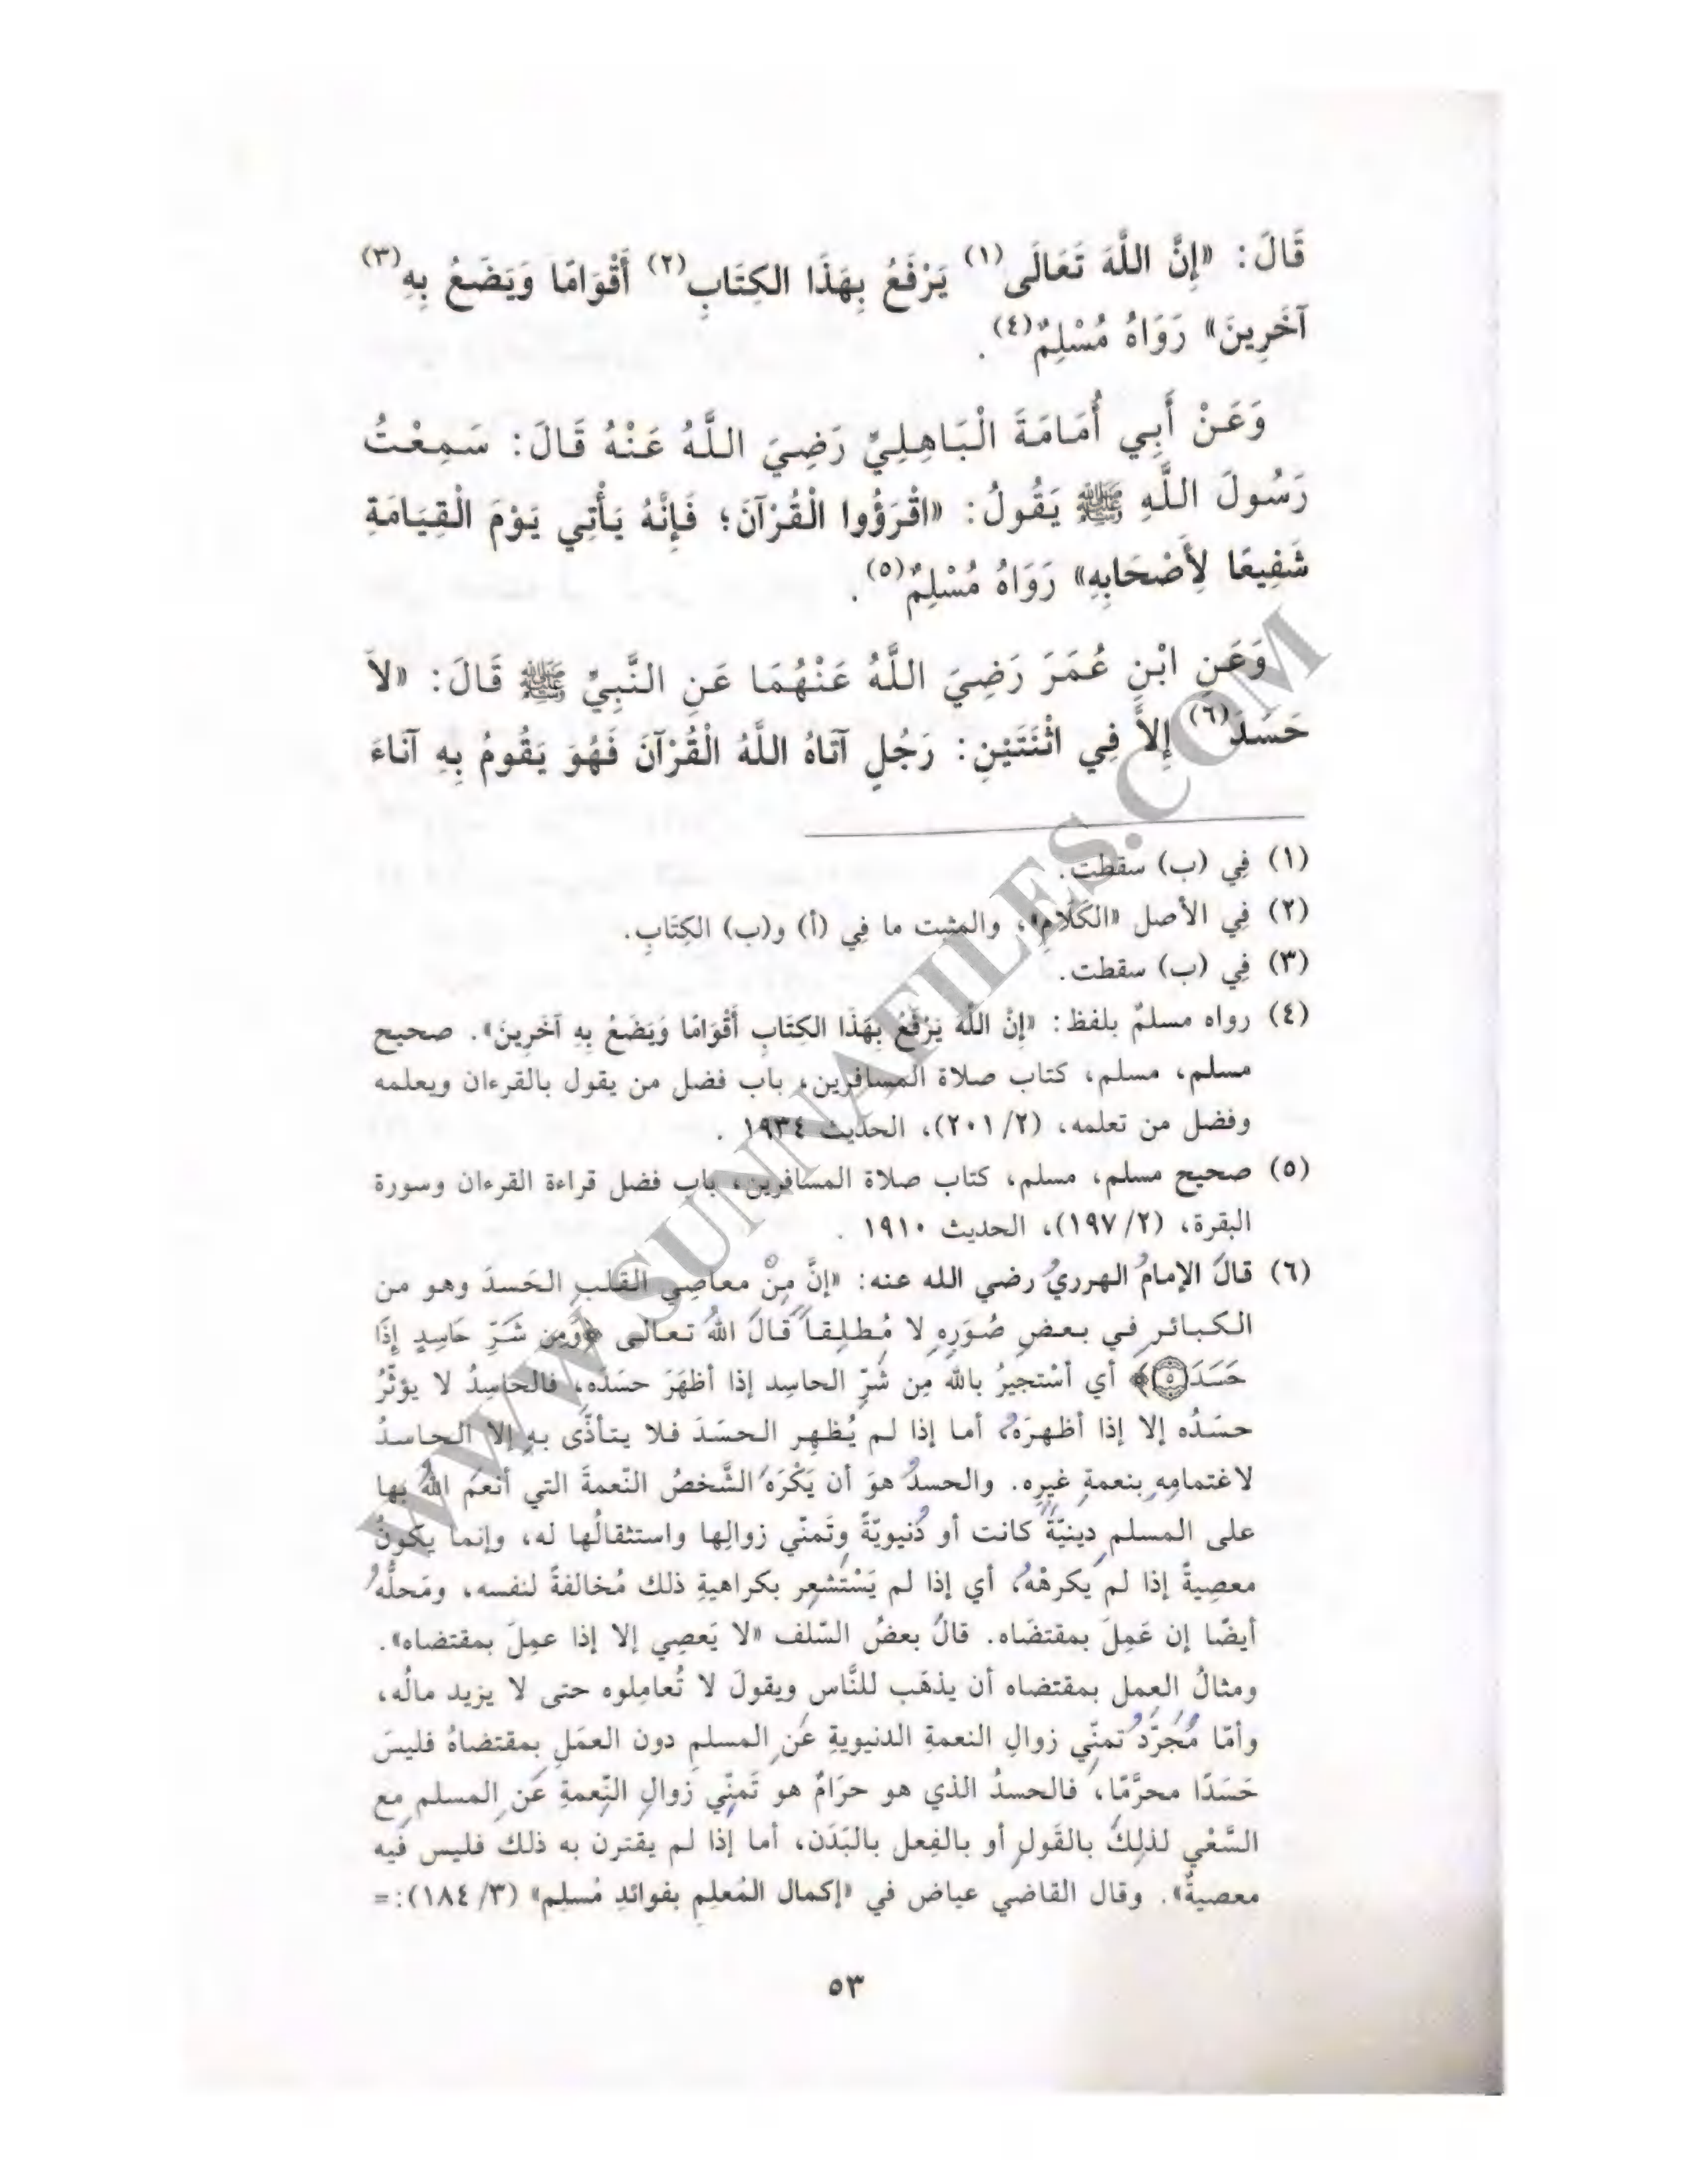 قَالَ: «إِنَّ اللَّهَ تَعَالَى(١) يَرْفَعُ بِهَذَا الكِتَابِ(٢) أَقْوَامًا وَيَضَعُ بِهِ(٣)
آخَرِينَ» رَوَاهُ مُسْلِمٌ(٤).
وَعَنْ أَبِي أُمَامَةَ الْبَاهِلِيِّ رَضِيَ اللَّهُ عَنْهُ قَالَ: سَمِعْتُ
رَسُولَ اللَّهِ ﷺ يَقُولُ: «اقْرَؤُوا الْقُرْآنَ؛ فَإِنَّهُ يَأْتِي يَوْمَ الْقِيَامَةِ
شَفِيعًا لِأَصْحَابِهِ» رَوَاهُ مُسْلِمٌ(٥).
وَعَنِ ابْنِ عُمَرَ رَضِيَ اللَّهُ عَنْهُمَا عَنِ النَّبِيِّ ﷺ قَالَ: «لاَ
حَسَدَ(٦) إِلاَّ فِي اثْنَتَيْنِ: رَجُلٍ آتَاهُ اللَّهُ الْقُرْآنَ فَهُوَ يَقُومُ بِهِ آنَاءَ
(١) فِي (ب) سقطت.
(٢) فِي الأصل «الكَلَامِ»، والمثبت ما فِي (أ) و(ب) الكِتَابِ.
(٣) فِي (ب) سقطت.
(٤) رواه مسلمٌ بلفظ: «إِنَّ اللَّهَ يَرْفَعُ بِهَذَا الكِتَابِ أَقْوَامًا وَيَضَعُ بِهِ آخَرِينَ». صحيح
مسلم، مسلم، كتاب صلاة المسافرين، باب فضل من يقول بالقرءان ويعلمه
وفضل من تعلمه، (٢/ ٢٠١)، الحديث ١٩٣٤ .
(٥) صحيح مسلم، مسلم، كتاب صلاة المسافرين، باب فضل قراءة القرءان وسورة
البقرة، (٢/ ١٩٧)، الحديث ١٩١٠ .
(٦) قالَ الإمامُ الهرريُّ رضي الله عنه: «إنَّ مِنْ معاصِي القلبِ الحَسدَ وهو من
الكبائرِ في بعضِ صُوَرِهِ لا مُطلقاً قالَ اللهُ تعالى ﴿وَمِن شَرِّ حَاسِدٍ إِذَا
حَسَدَ ٥﴾ أي أسْتجيرُ بالله مِن شَرِّ الحاسِد إذا أظهَرَ حسَدَه، فالحاسِدُ لا يؤثّرُ
حسَدُه إلا إذا أظهرَهُ، أما إذا لم يُظهِر الحسَدَ فلا يتأذّى به إلا الحاسدُ
لاغتمامِهِ بنعمةِ غيرِه. والحسدُ هوَ أن يَكْرَهَ الشَّخصُ النّعمةَ التي أنعمَ اللهُ بها
على المسلمِ دِينيّةً كانت أو دُنيويّةً وتَمنّي زوالِها واستثقالُها له، وإنما يكونُ
معصِيةً إذا لم يَكرهْهُ، أي إذا لم يَسْتَشعِر بكراهيةِ ذلك مُخالفةً لنفسه، ومَحلُّهُ
أيضًا إن عَمِلَ بمقتضَاه. قالَ بعضُ السّلف «لا يَعصِي إلا إذا عمِلَ بمقتضاه».
ومثالُ العمل بمقتضاه أن يذهَب للنَّاس ويقولَ لا تُعامِلوه حتى لا يزيد مالُه،
وأمّا مُجَرَّدُ تمنِّي زوالِ النعمةِ الدنيويةِ عَنِ المسلمِ دون العمَلِ بمقتضاهُ فليسَ
حَسَدًا محرَّمًا، فالحسدُ الذي هو حرَامٌ هو تَمنِّي زوالِ النِّعمةِ عَنِ المسلمِ مع
السَّعْي لذلِكَ بالقَولِ أو بالفِعل بالبَدَن، أما إذا لم يقترن به ذلك فليس فيه
معصيةٌ». وقال القاضي عياض في «إكمال المُعلِمِ بفوائدِ مُسلِم» (٣/ ١٨٤):=
٥٣
WWW.SUNNAFILES.COM